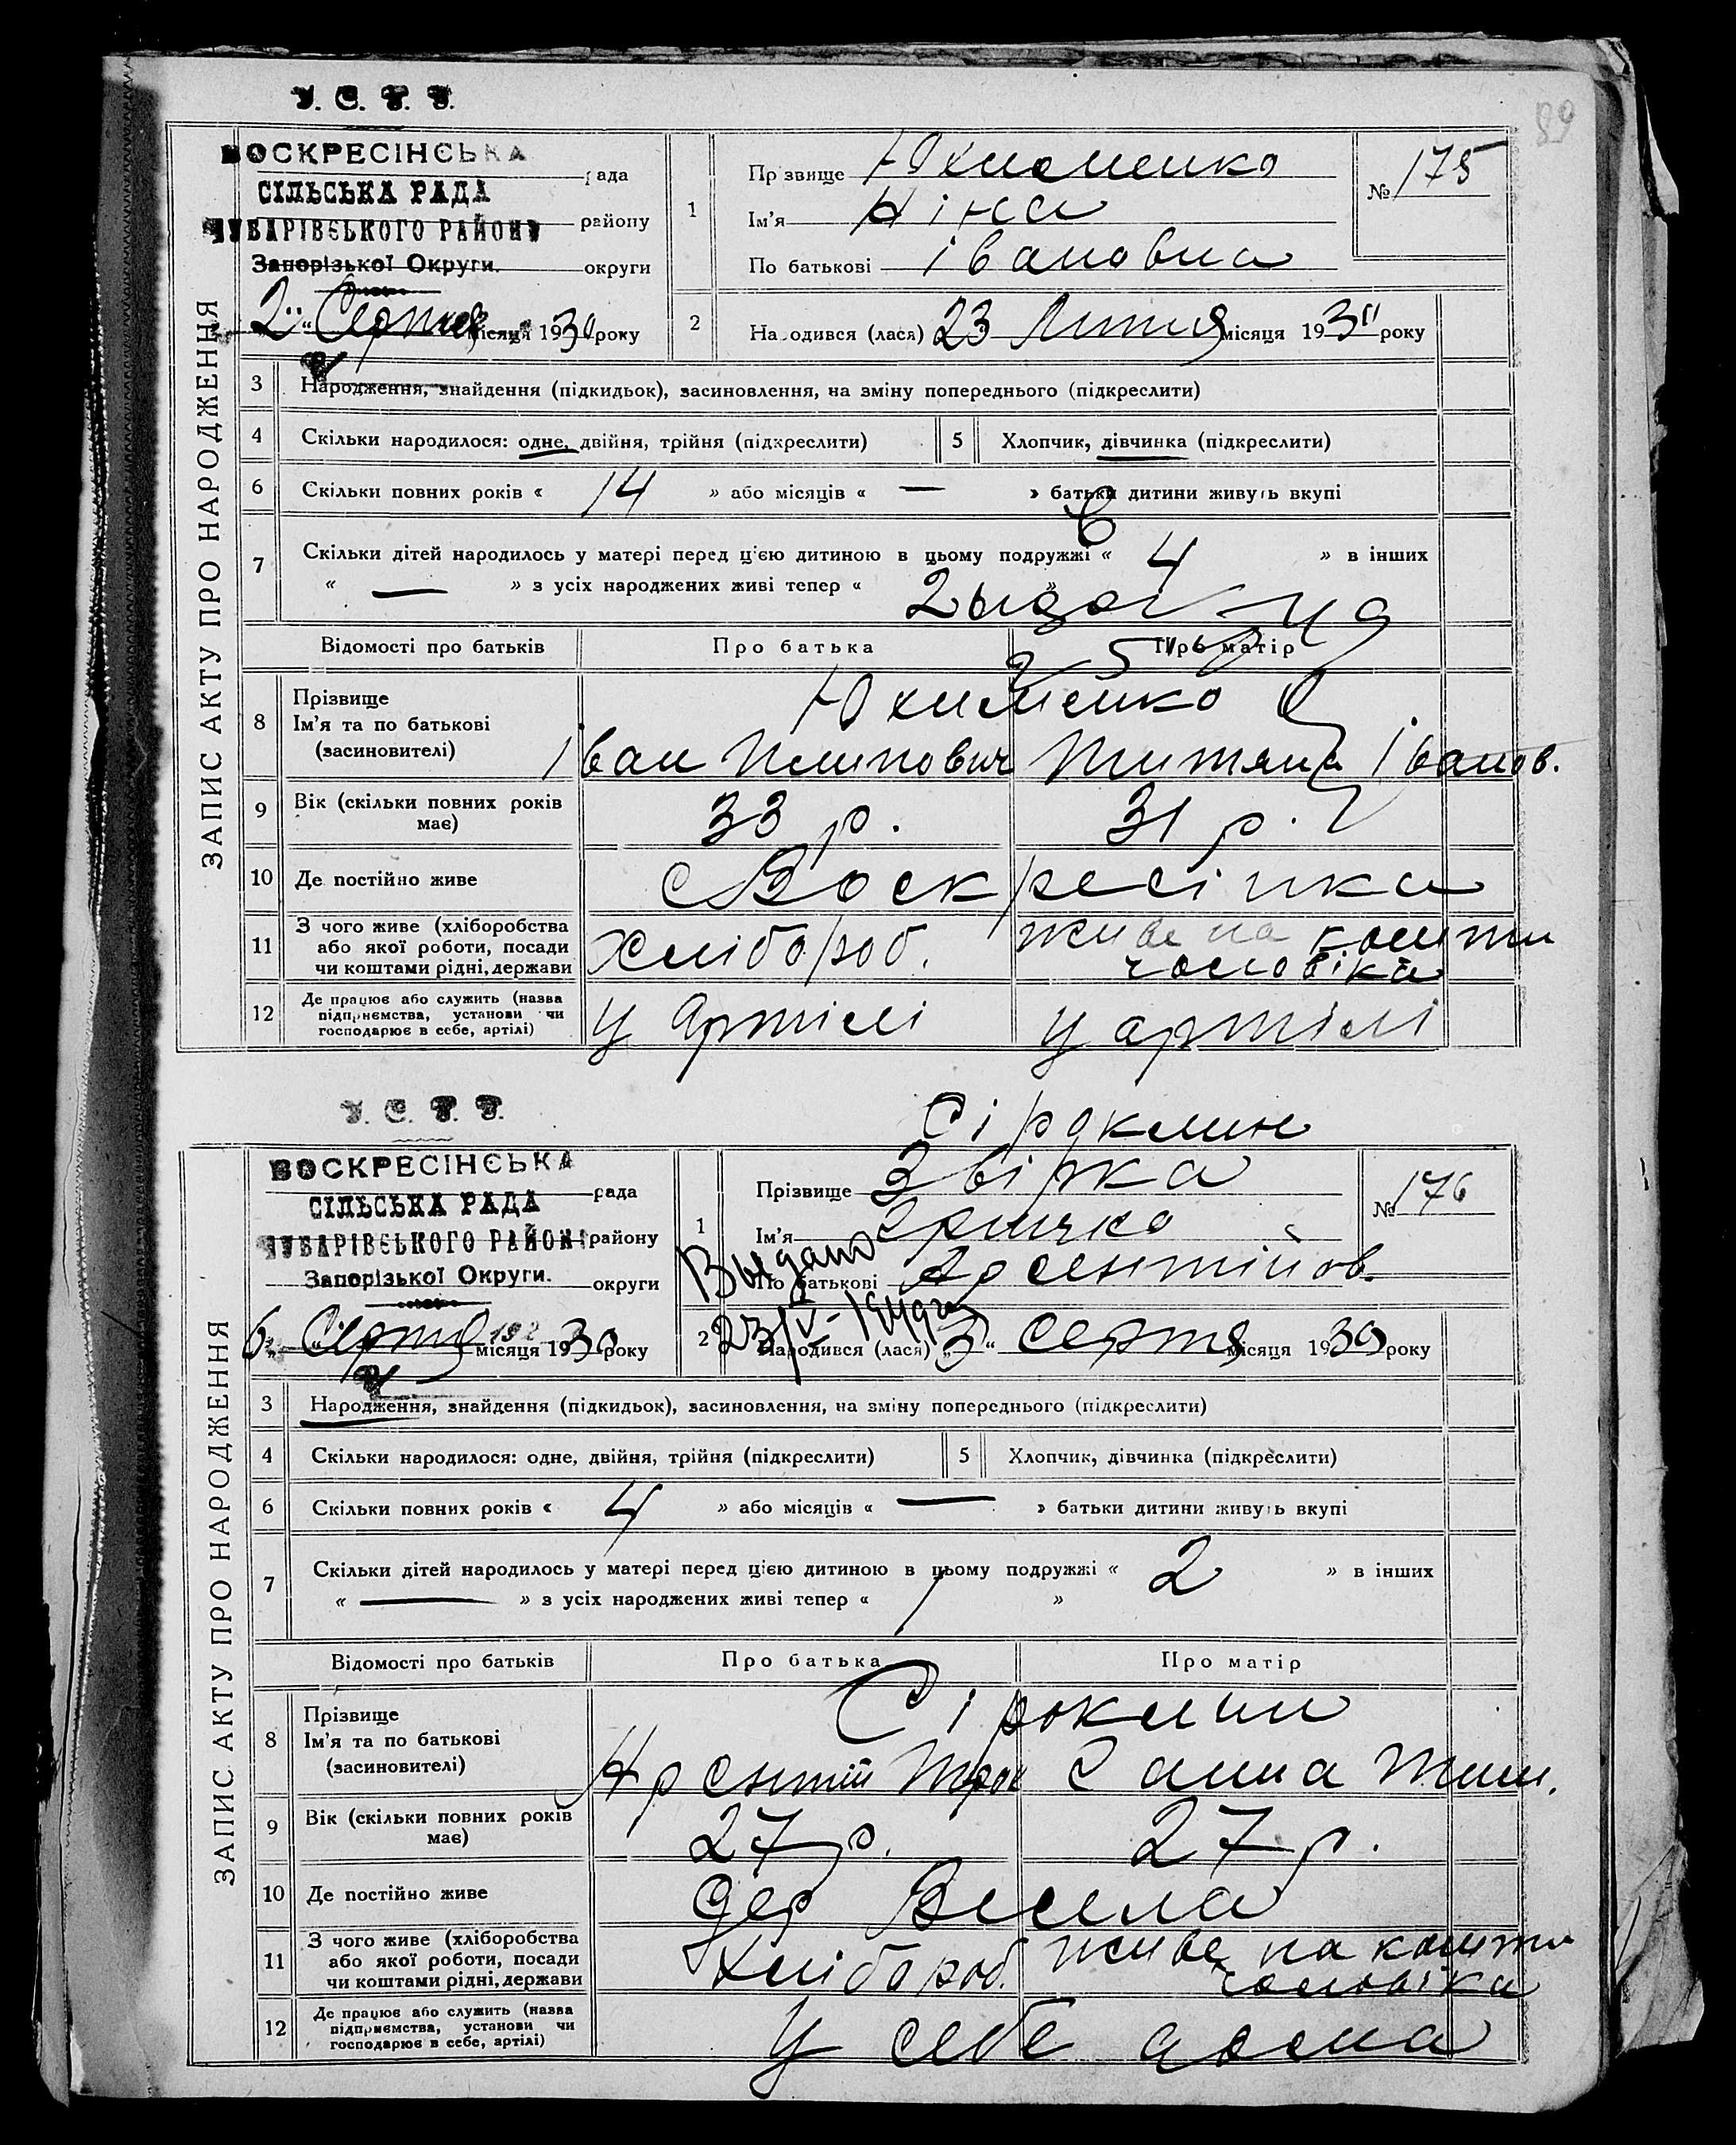 У. С. Р. Р.
89
ВОСКРЕСІНСЬКА рада
СІЛЬСЬКА РАДА
ЧУБАРІВСЬКОГО РАЙОНУ району
Запорізької Округи. округи
2 Серпня місяця 1930 року
ЗАПИС АКТУ ПРО НАРОДЖЕННЯ
1 Прізвище Юхименко
Ім’я Ніна
По батькові Івановна
№ 175
2 Народився (лася) 23 Липня місяця 1930 року
3 Народження, знайдення (підкидьок), засиновлення, на зміну попереднього (підкреслити)
4 Скільки народилося: одне, двійня, трійня (підкреслити) 5 Хлопчик, дівчинка (підкреслити)
6 Скільки повних років « 14 » або місяців « — » батьки дитини живуть вкупі
7 Скільки дітей народилось у матері перед цією дитиною в цьому подружжі « 4 » в інших
« — » з усіх народжених живі тепер « 2 »
Відомості про батьків Про батька Про матір
8 Прізвище
Ім’я та по батькові
(засиновителі)
Юхименко
Іван Пилипович Титяна Іванов.
9 Вік (скільки повних років має) 33 р. 31 р.
10 Де постійно живе с Воскресінка
11 З чого живе (хліборобства
або якої роботи, посади
чи коштами рідні, держави
Хлібороб. живе на кошти
чоловіка
12 Де працює або служить (назва
підприємства, установи чи
господарює в себе, артілі)
У Артілі У артілі
У. С. Р. Р.
Сіроклин
ВОСКРЕСІНСЬКА рада
СІЛЬСЬКА РАДА
ЧУБАРІВСЬКОГО РАЙОНУ району
Запорізької Округи. округи
6 Серпня місяця 1930 року
ЗАПИС АКТУ ПРО НАРОДЖЕННЯ
1 Прізвище Звірка
Ім’я Гричко
По батькові Арсентійов.
№ 176
Выдано
2 Народився (лася) „3“ Серпня місяця 1930 року
3 Народження, знайдення (підкидьок), засиновлення, на зміну попереднього (підкреслити)
4 Скільки народилося: одне, двійня, трійня (підкреслити) 5 Хлопчик, дівчинка (підкреслити)
6 Скільки повних років « 4 » або місяців « — » батьки дитини живуть вкупі
7 Скільки дітей народилось у матері перед цією дитиною в цьому подружжі « 2 » в інших
« — » з усіх народжених живі тепер « 1 »
Відомості про батьків Про батька Про матір
8 Прізвище
Ім’я та по батькові
(засиновителі)
Сіроклин
Арсентій Ганна Тим.
9 Вік (скільки повних років має) 27 р. 27 р.
10 Де постійно живе дер Весела
11 З чого живе (хліборобства
або якої роботи, посади
чи коштами рідні, держави
Хлібороб. живе на кошти
чоловіка
12 Де працює або служить (назва
підприємства, установи чи
господарює в себе, артілі)
У себе дома